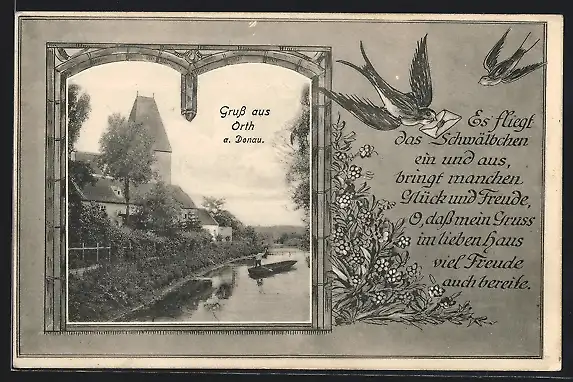 Gruß aus
Orth
a. Donau.
Es fliegt
das Schwälbchen
ein und aus,
bringt manchen
Glück und Freude,
O, daß mein Gruss
im lieben Haus
viel Freude
auch bereite.